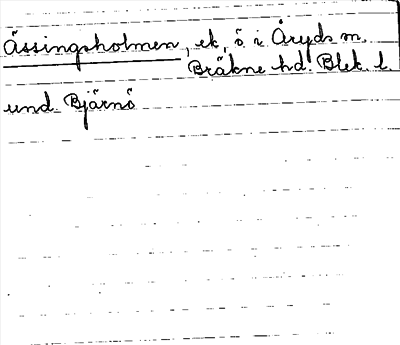 Ässingsholmen, ek, ö i Åryds m.
Bräkne hd Blek. l.
und. Björnö